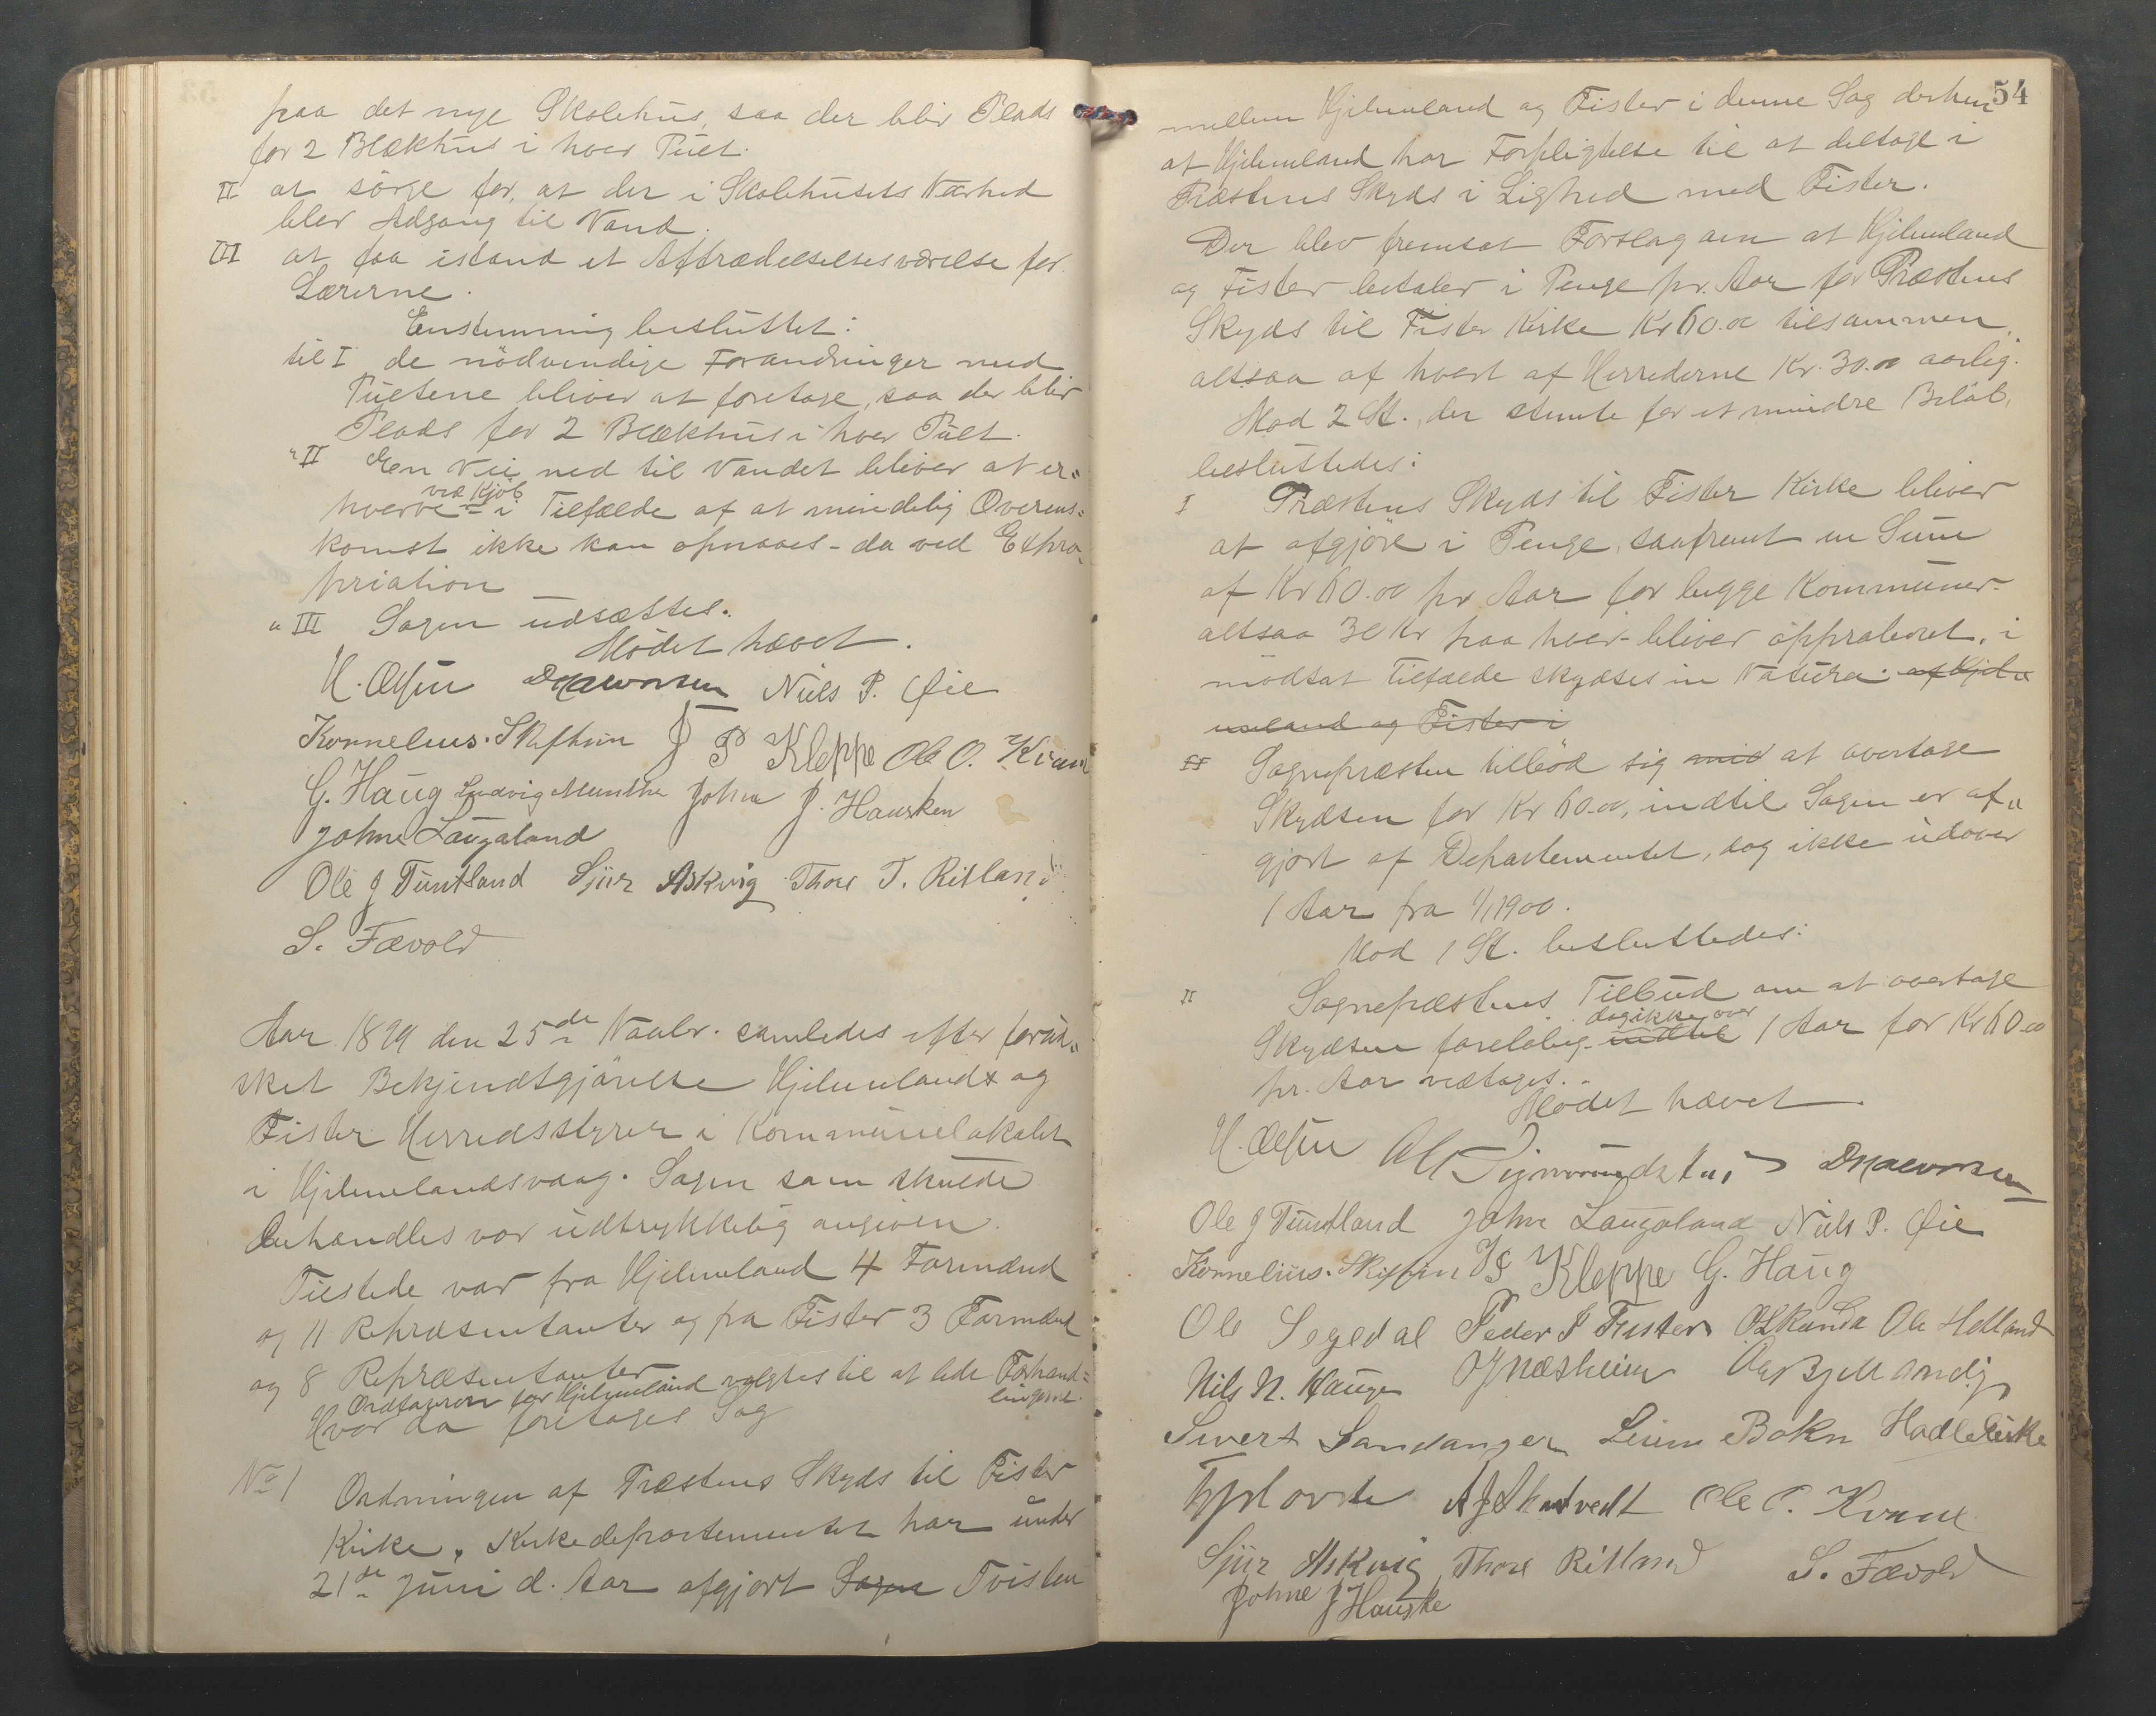 paa det nye Skolehus, saa der blir Plads
for 2 Blækhus i hver Pult.
II at sørge for, at der i Skolehusets Nærhed
blev Adgang til Vand.
III at faa istand et Aftrædelsesværelse for
Lærerne.
Enstemmig besluttet:
til I de nödvendige Forandringer med
Pultene bliver at foretage, saa der blir
Plads for 2 Blækhus i hver Pult.
"II Een Vei ned til Vandet bliver at er=
hverve ved Kjöb - i Tilfælde af at mindelig Overens=
komst ikke kan opnaaes - da ved Expro=
priation
" III Sagen udsættes.
Mödet hævet.
H. Olsen Niels P. Øie
Kornelius Skiftun J P Kleppe Ole O. Kvame
G. Haug Ludvig Munthe Johne J. Hausken
Johne Laugaland
Ole J Tuntland Sjur Askvig Thore T. Ritland
S. Fævold
Aar 1899 den 25de Novbr. samledes efter forud=
sket Bekjendtgjörelse Hjelmelands og
Fister Herredsstyrer i Kommunelokalet
i Hjelmelandsvaag. Sagen som skulde
behandles var udtrykkelig angiven.
Tilstede var fra Hjelmeland 4 Formænd
og 11 Repræsentanter og fra Fister 3 Formænd
og 8 Repræsentanter
Ordføreren for Hjelmeland valgtes til at lede Forhand=
lingerne.
Hvor da foretoges Sag
No 1 Ordningen af Præstens Skyds til Fister
Kirke. Kirkedepartementet har under
21de Juni d. Aar afgjort Sagen Tvisten
54
mellem Hjelmeland og Fister i denne Sag derhen
at Hjelmeland har Forpligtelse til at deltage i
Præstens Skyds i Lighed med Fister.
Der blev fremsat Forslag om at Hjelmeland
og Fister betaler i Penge pr. Aar for Præstens
Skyds til Fister Kirke Kr 60.00 tilsammen,
altsaa af hvert af Herrederne Kr. 30.00 aarlig.
Mod 2 St., der stemte for et mindre Belöb,
besluttedes:
I Præstens Skyds til Fister Kirke bliver
at afgjöre i Penge, saafremt en Sum
af Kr 60.00 pr Aar for begge Kommuner -
altsaa 30 Kr paa hver - bliver approberet, i
modsat Tilfælde skydses in Natura. af Hjel=
meland og Fister i
II Sognepræsten tilböd sig med at overtage
Skydsen for Kr 60.00, indtil Sagen er af=
gjort af Departementet, dog ikke udover
1 Aar fra 1/1 1900.
Mod 1 St. besluttedes:
II Sognepræstens Tilbud om at overtage
Skydsen forelöbig indtil dog ikke over 1 Aar for Kr 60.00
pr. Aar vedtages.
Mödet hævet.
H. Olsen
Ole J Tuntland Johne Laugaland Niels P. Øie
Kornelius Skiftun Kleppe G. Haug
Ole Segedal Peder P Fister Ole Helland
Nils N. Hauge
Sivert Sandanger Bokn Hadle
Ole O. Kvame
Sjur Askvig Thore Ritland S. Fævold
Johne J Hauske